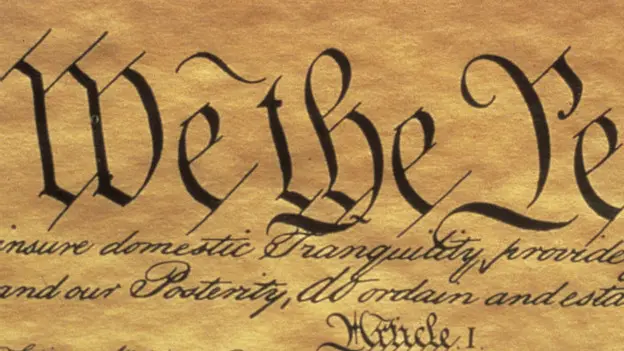 We the Pe
insure domestic Tranquility, provide
and our Posterity, do ordain and esta
Article. I.